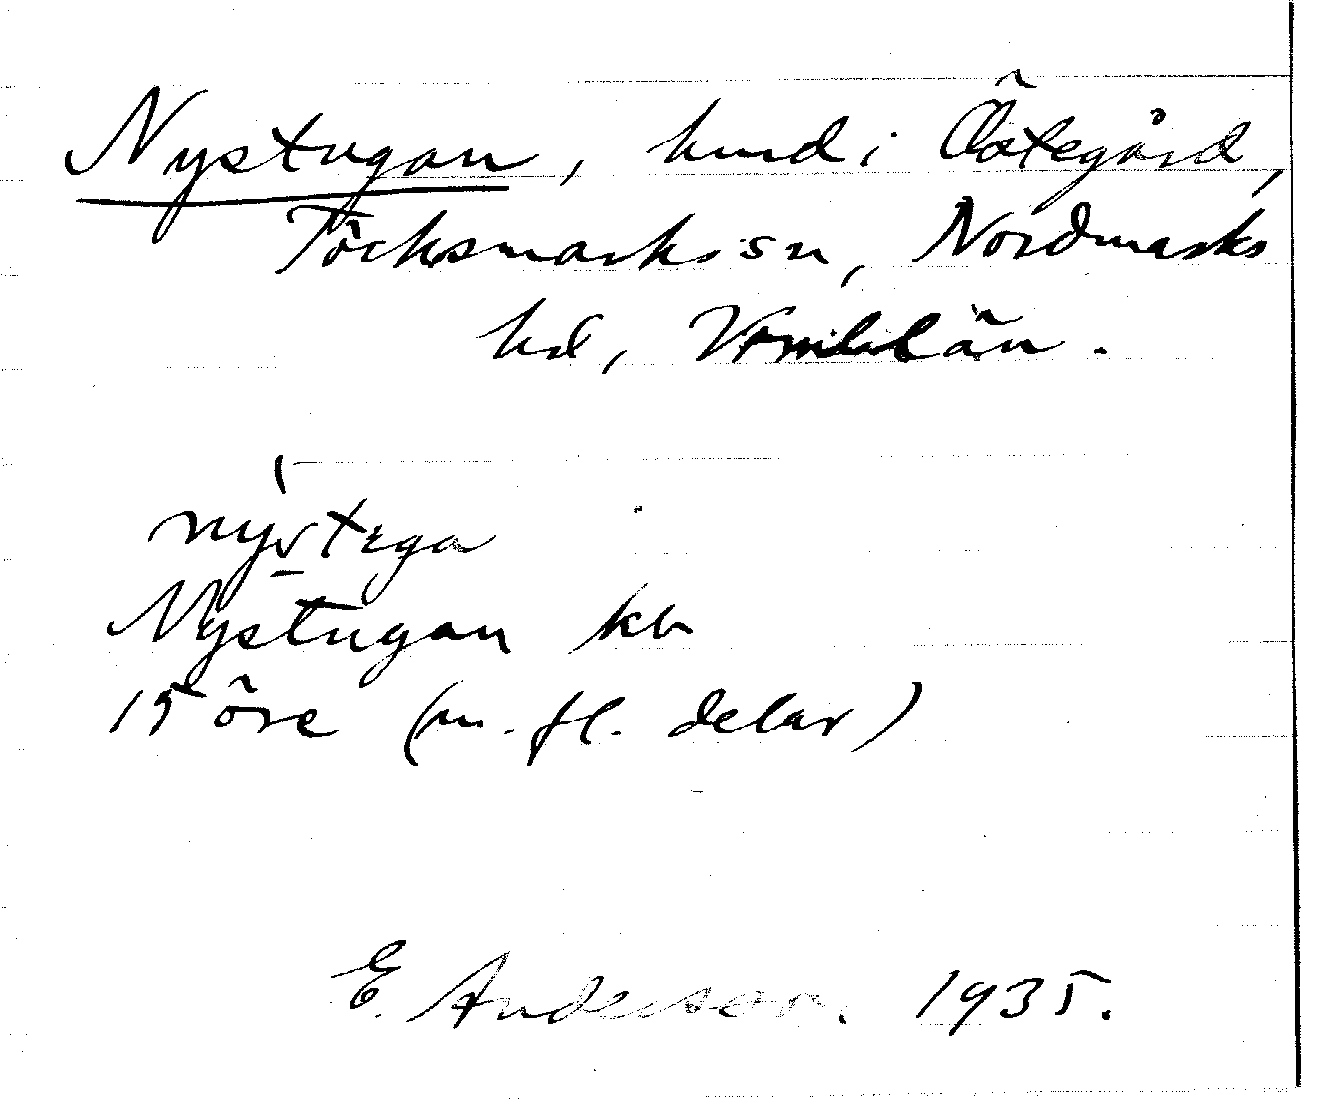 Nystugan, hmd i Östegård,
Töcksmarks sn, Nordmarks
hd, Vrmlds län.
nystega
Nystugan kb
15 öre (m. fl. delar)
E. Anderson. 1935.